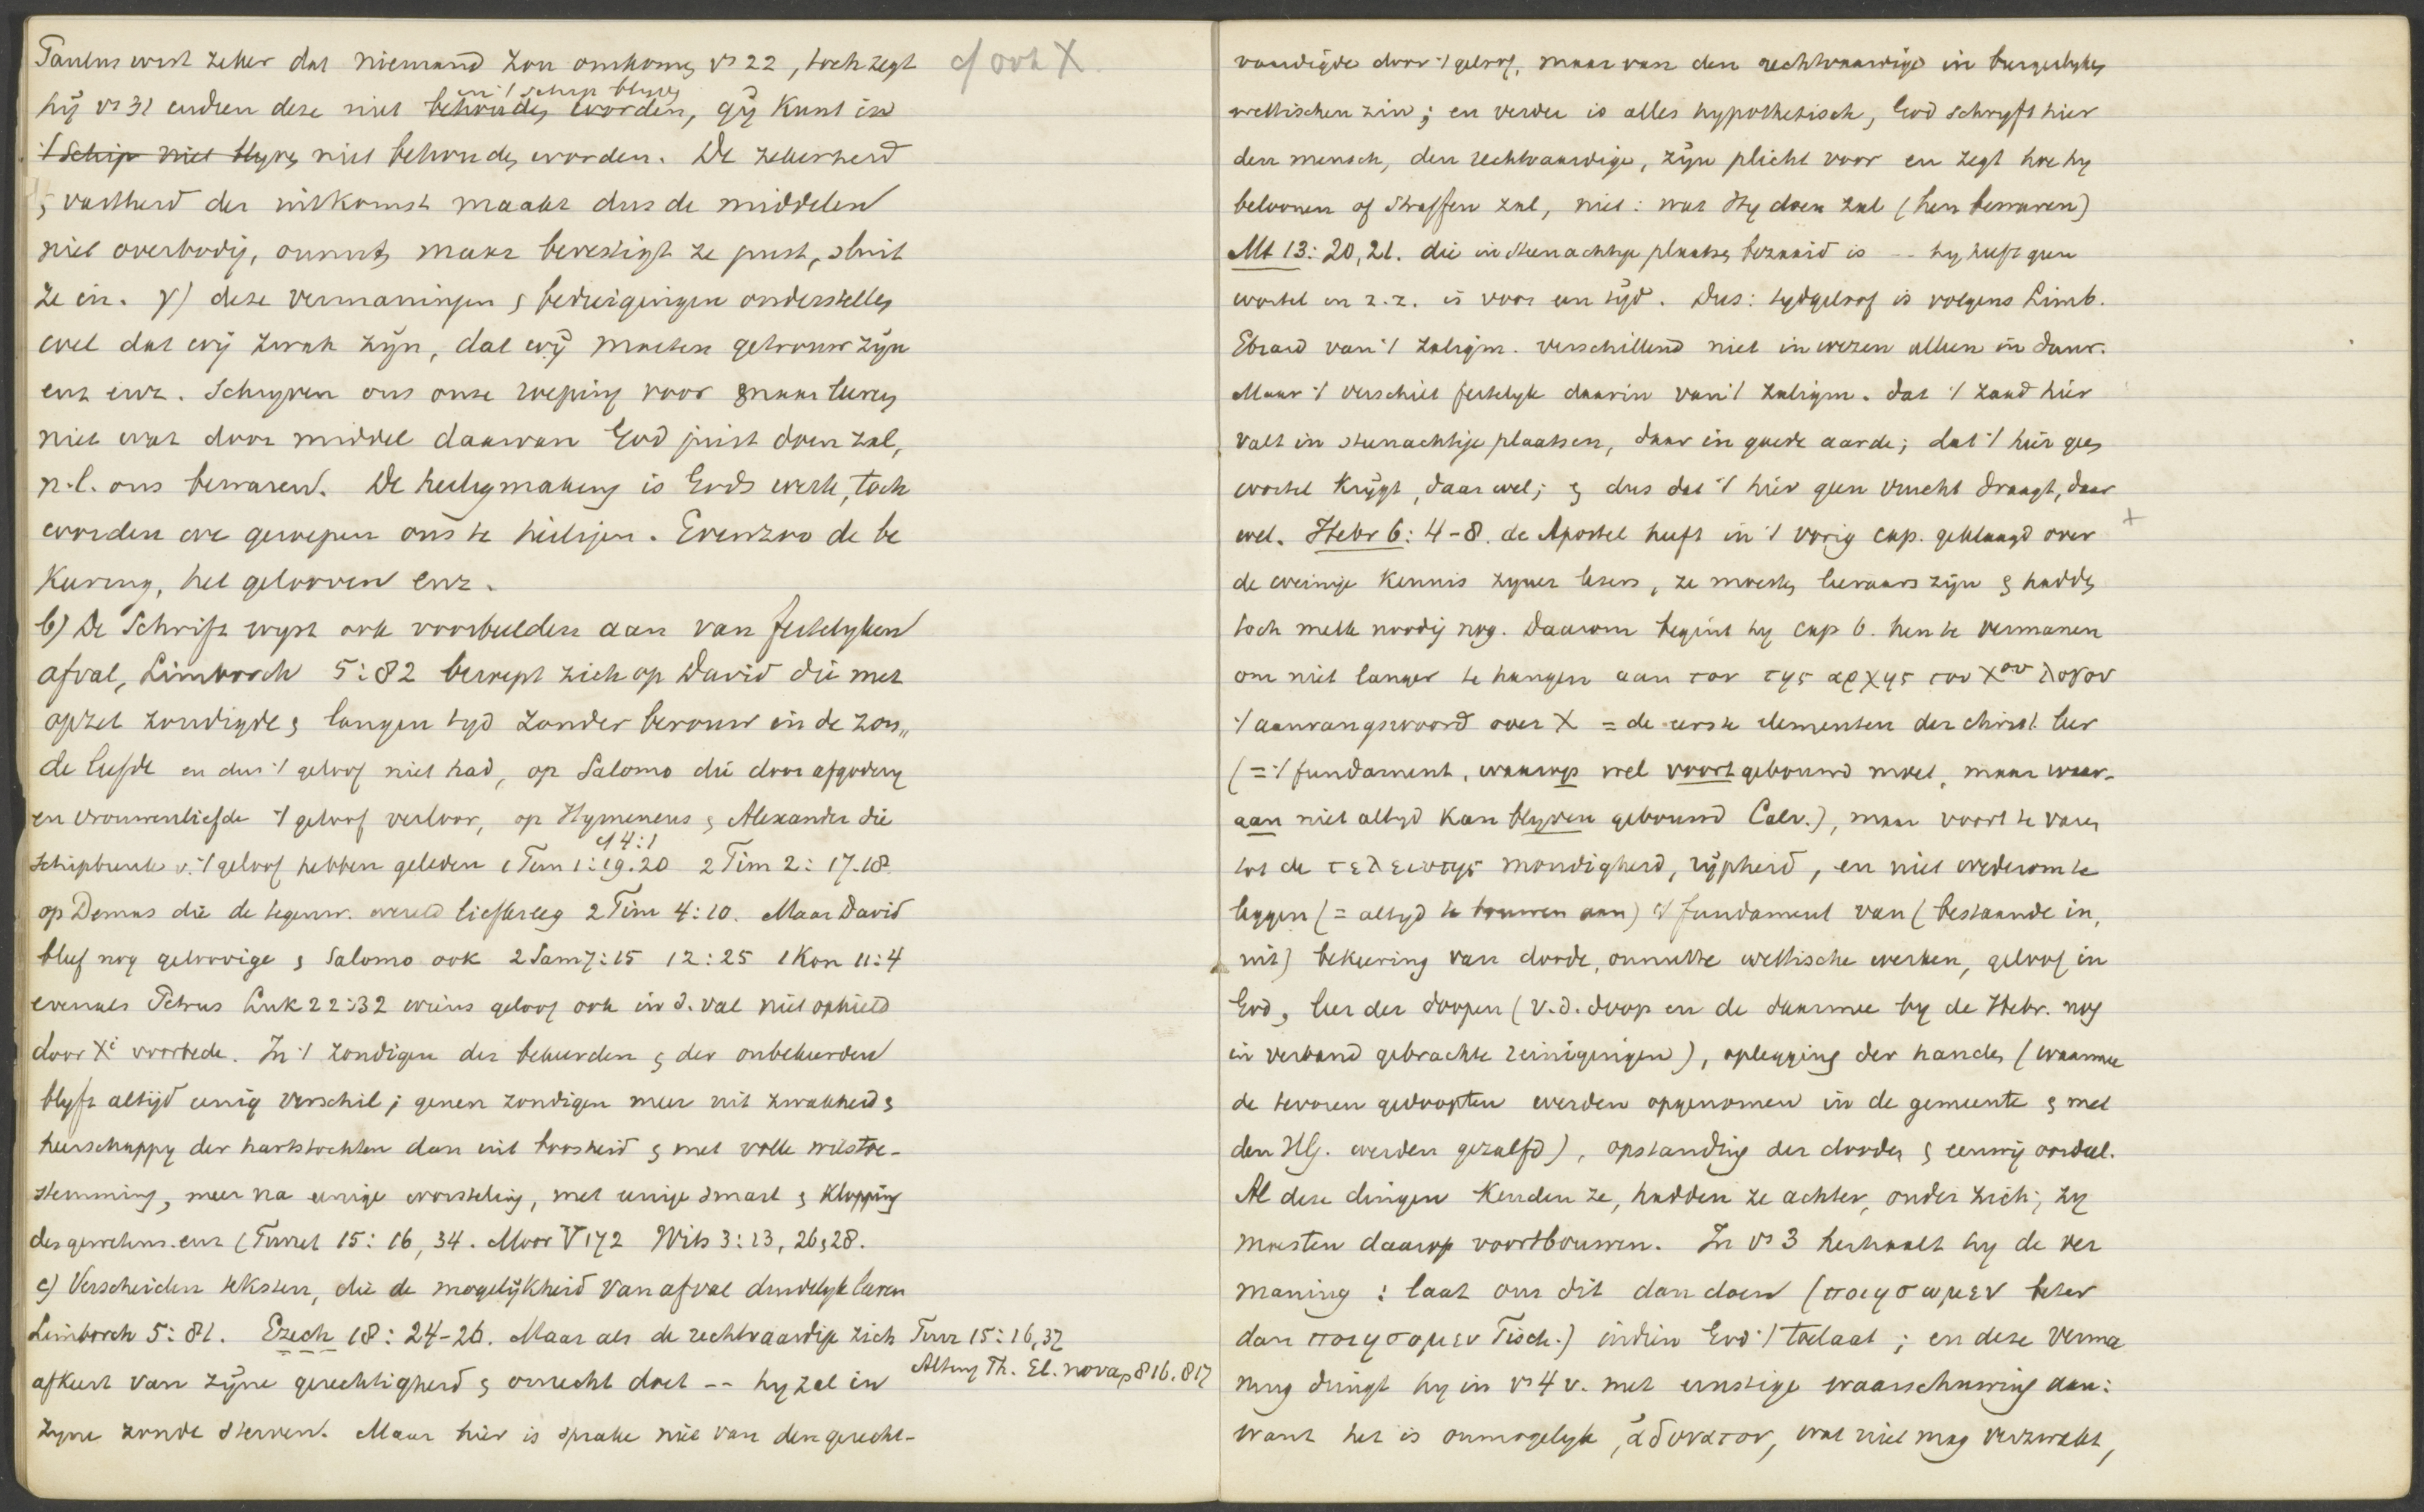 Paulus wist zeker dat niemand zou omkomen vs 22, toch zegt
cf ook X.
in 't schip blyven
hÿ vs 31 indien deze niet behouden worden, gÿ kunt in
't Schip niet blyven niet behouden worden. De zekerheid
& vastheid der uitkomst maakt dus de middelen
niet overbodig, onnut, maar bevestigt ze juist, sluit
ze in. γ) deze vermaningen & bedreigingen onderstellen
wel dat wÿ zwak zÿn, dat wÿ moeten getrouw zÿn
enz enz. Schryven ons onze roeping voor & maar leeren
niet wat door middel daarvan God juist doen zal,
n.l. ons bewaren. De heiligmaking is Gods werk, toch
worden we geroepen ons te heiligen. Evenzoo de be
keering, het gelooven enz.
b) De Schrift wyst ook voorbeelden aan van feitelyken
afval, Limborch 5:82 beroept zich op David die met
opzet zondigde & langen tyd zonder berouw in de zon„
de leefde en dus 't geloof niet had, op Salomo die door afgodery
en vrouwenliefde 't geloof verloor, op Hymeneus & Alexander die
cf 4:1
schipbreuk v. 't geloof hebben geleden 1 Tim 1:19.20 2 Tim 2:17.18
op Demas die de tegenw. wereld liefkreeg 2 Tim 4:10. Maar David
bleef nog geloovige & Salomo ook 2 Sam 7:15 12:25 1 Kon 11:4
evenals Petrus Luk 22:32 wiens geloof ook in d. val niet ophield
door Xⁱ voorbede. In 't zondigen der bekeerden & der onbekeerden
blyft altijd eenig verschil; genen zondigen meer uit zwakheid &
heerschappy der hartstochten dan uit boosheid & met volle wilstoe-
stemming, meer na eenige worsteling, met eenige smart & klopping
des gewetens enz (Turret 15:16, 34. Moor V 172 Wits 3:13, 26, 28.
c) Verscheiden teksten, die de mogelÿkheid van afval duidelyk leeren
Limborch 5:81. Ezech 18:24-26. Maar als de rechtvaardige zich
Turr 15:16, 32
Alting Th. El. nova p 816.817
afkeert van zÿne gerechtigheid & onrecht doet -- hy zal in
zyne zonde sterven. Maar hier is sprake niet van den gerecht-
vaardigde door 't geloof, maar van den rechtvaardige in burgerlyken
wettischen zin; en verder is alles hypothetisch, God schryft hier
den mensch, den rechtvaardige, zÿn plicht voor en zegt hoe hy
beloonen of straffen zal, niet: wat Hy doen zal (hen bewaren)
Mt 13:20,21. die in steenachtige plaatsen bezaaid is -- hy heeft geen
wortel in z.z. is voor een tÿd. Dus: tydgeloof is volgens Limb.
Ebrard van 't zaligm. verschillend niet in wezen alleen in duur.
Maar 't verschilt feitelyk daarin van 't zaligm. dat 't zaad hier
valt in steenachtige plaatsen, daar in goede aarde; dat 't hier geen
wortel krÿgt, daar wel; & dus dat 't hier geen vrucht draagt, daar
wel. Hebr 6:4-8. de Apostel heeft in 't vorig cap. geklaagd over +
de weinige kennis zyner lezers, ze moesten leeraars zÿn & hadden
toch melk noodig nog. Daarom begint hy cap 6. hen te vermanen
om niet langer te hangen aan τον της αρχης του Xου λογον
't aanvangswoord over X = de eerste elementen der christ. leer
(= 't fundament, waarop wel voortgebouwd moet, maar waar-
aan niet altyd kan blyven gebouwd Calv.), maar voort te varen
tot de τελειοτης mondigheid, rÿpheid, en niet wederom te
leggen (= altyd te bouwen aan) 't fundament van (bestaande in,
uit) bekeering van doode, onnutte wettische werken, geloof in
God, leer der doopen (v.d. doop en de daarmee by de Hebr. nog
in verband gebrachte reinigingen), oplegging der handen (waarmee
de tevoren gedoopten werden opgenomen in de gemeente & met
den HG. werden gezalfd), opstanding der dooden & eeuwig oordeel.
Al deze dingen kenden ze, hadden ze achter, onder zich; zy
moesten daarop voortbouwen. In vs 3 herhaalt hy de ver
maning: laat ons dit dan doen (ποιησωμεν beter
dan ποιησομεν Tisch.) indien God 't toelaat; en deze verma
ning dringt hy in vs 4 v. met ernstige waarschuwing aan:
want het is onmogelyk, ἀδυνατον, wat niet mag verzwakt,